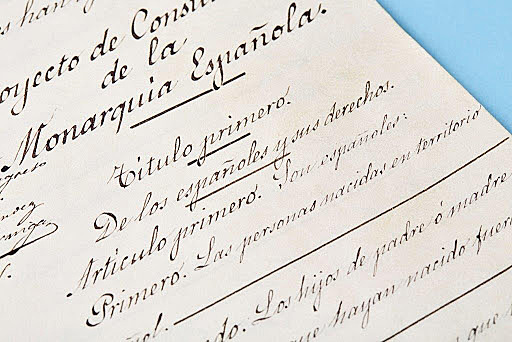 es han
oyecto de Consti
de la
Monarquía Española.
Título primero.
De los españoles y sus derechos.
Artículo primero. Son españoles:
Primero. Las personas nacidas en territorio
ñol.
do. Los hijos de padre ó madre
que hayan nacido fuera
que